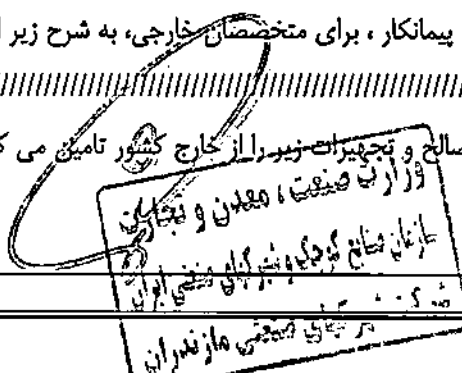 پیمانکار ، برای متخصصان خارجی، به شرح زیر ا
////////////////////////////////////////////////////////////
صالح و تجهیزات زیر را از خارج کشور تامین می ک
وزارت صنعت ، معدن و تجارت
سازمان صنایع کوچک و شهرکهای صنعتی ایران
شرکت شهرکهای صنعتی مازندران